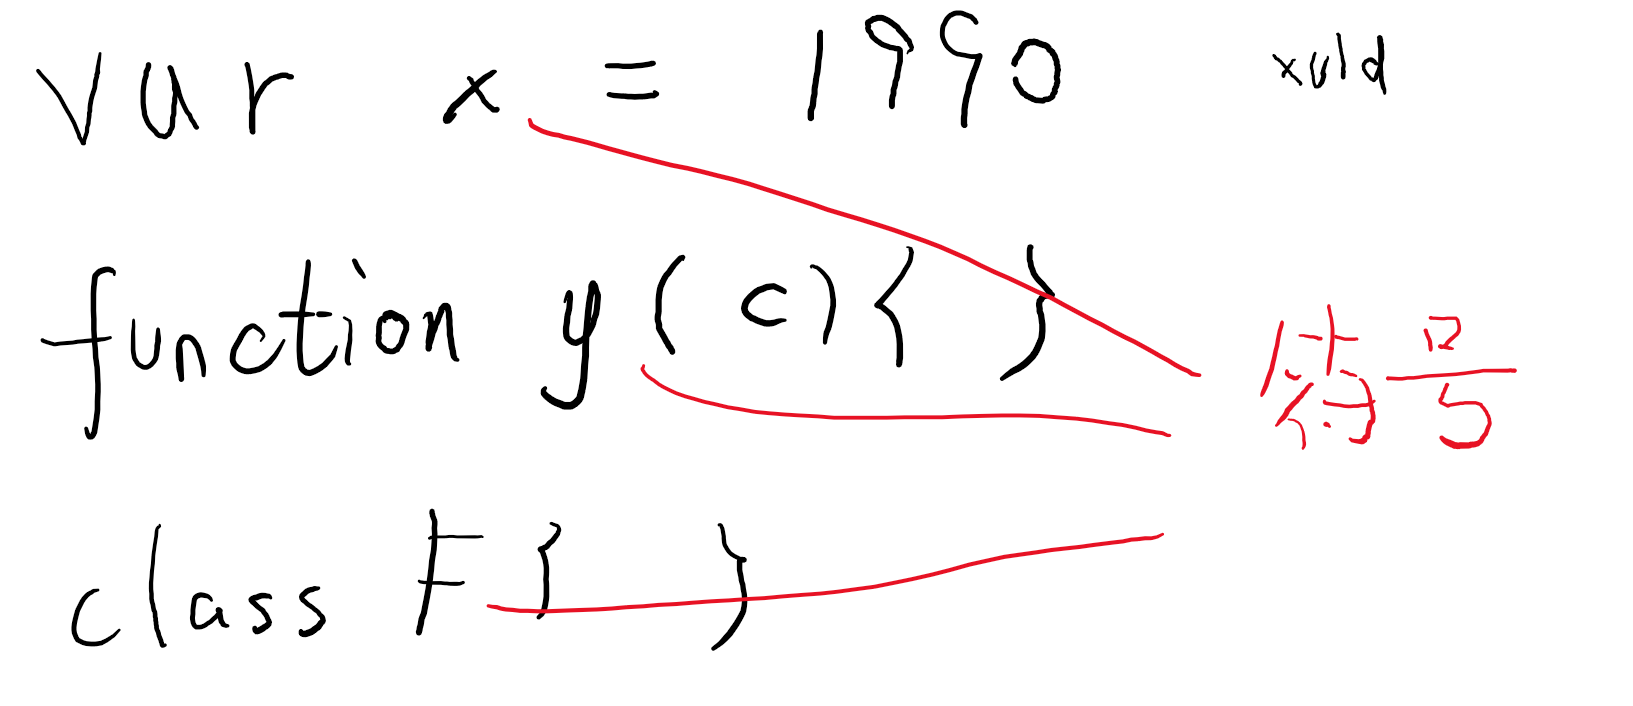 var x = 1990 xuld
function y(c){ }
符号
class F{ }